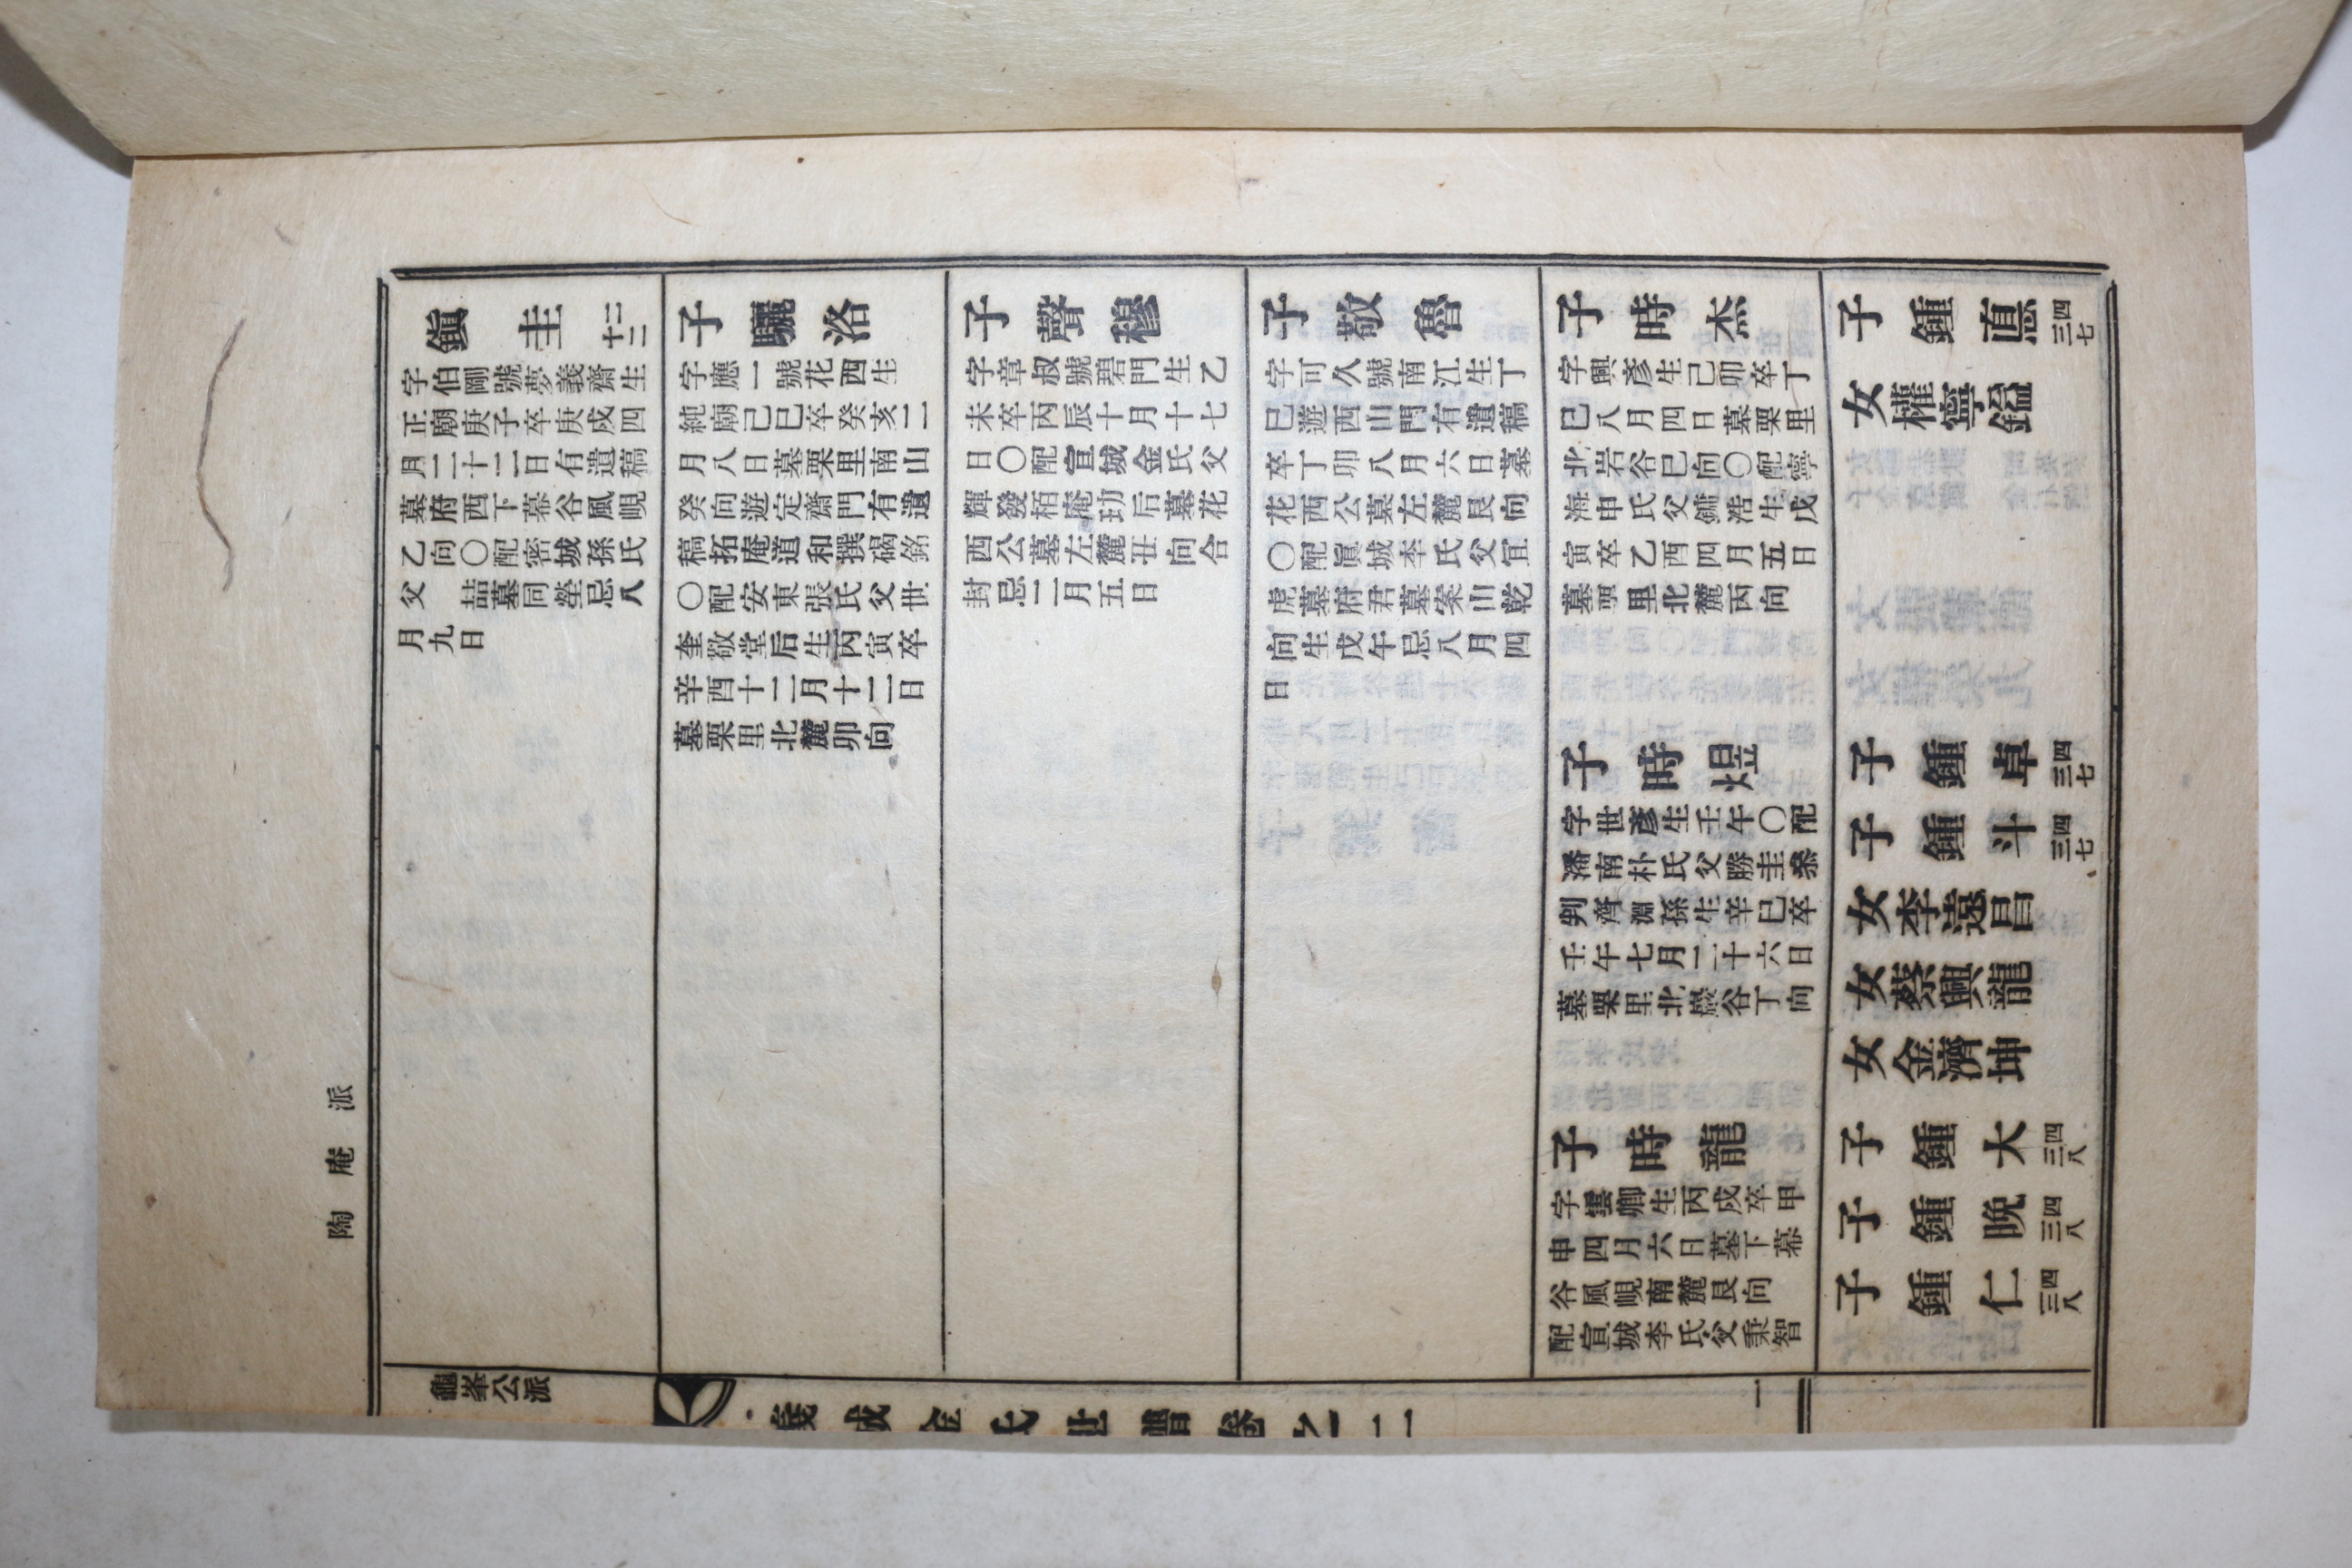 陶庵派
龜峯公派
義城金氏世譜卷之二
一
鎭圭 二十二
字伯剛號夢義齋生
正廟庚子卒庚戍四
月二十二日有遺稿
墓府西下幕谷風峴
乙向〇配密城孫氏
父 喆墓同塋忌八
月九日
子驪洛
字應一號花西生
純廟己巳卒癸亥二
月八日墓栗里南山
癸向遊定齋門有遺
稿拓庵道和撰碣銘
〇配安東張氏父世
奎敬堂后生丙寅卒
辛酉十二月十二日
墓栗里北麓卯向
子聲穆
字章叔號碧門生乙
未卒丙辰十月十七
日〇配宣城金氏父
輝發栢庵玏后墓花
西公墓左麓丑向合
封忌二月五日
子敬魯
字可久號南江生丁
巳遊西山門有遺稿
卒丁卯八月六日墓
花西公墓左麓艮向
〇配眞城李氏父冝
虎墓府君墓案山乾
向生戊午忌八月四
日
子時杰
字興彥生己卯卒丁
巳八月四日墓栗里
北岩谷巳向〇配寧
海申氏父鏞浩生戊
寅卒乙酉四月五日
墓栗里北麓丙向
子時煜
字世彥生壬午〇配
潘南朴氏父勝圭叅
判齊淵孫生辛巳卒
壬午七月二十六日
墓栗里北巖谷丁向
子時龍
字雲卿生丙戍卒甲
申四月六日墓下幕
谷風峴南麓艮向
配宣城李氏父秉智
子鍾悳 四三七
女權寧鎰
子鍾卓 四三七
子鍾斗 四三七
女李遠昌
女蔡興龍
女金濟坤
子鍾大 四三八
子鍾晩 四三八
子鍾仁 四三八